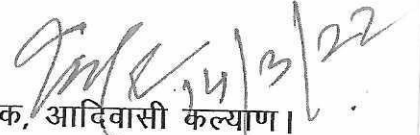 14/3/22
क, आदिवासी कल्याण।